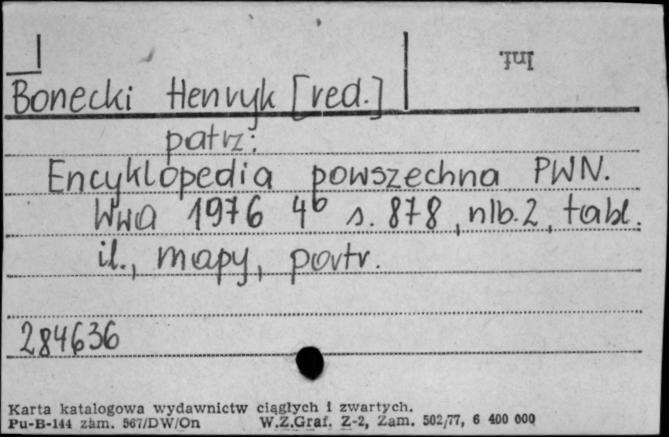 Inf.
Bonecki Henryk [red.]
patrz:
Encyklopedia powszechna PWN.
Wwa 1976 4° s. 878, nlb. 2, tabl.
il., mapy, portr.
284636
Karta katalogowa wydawnictw ciągłych i zwartych.
Pu-B-144 zam. 567/DW/On W.Z.Graf. Z-2, Zam. 502/77, 6 400 000